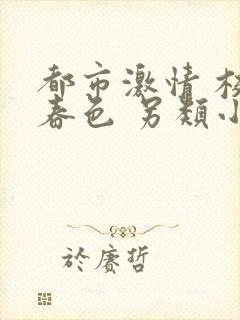 都市激情 校
春色 另類小
於賡哲